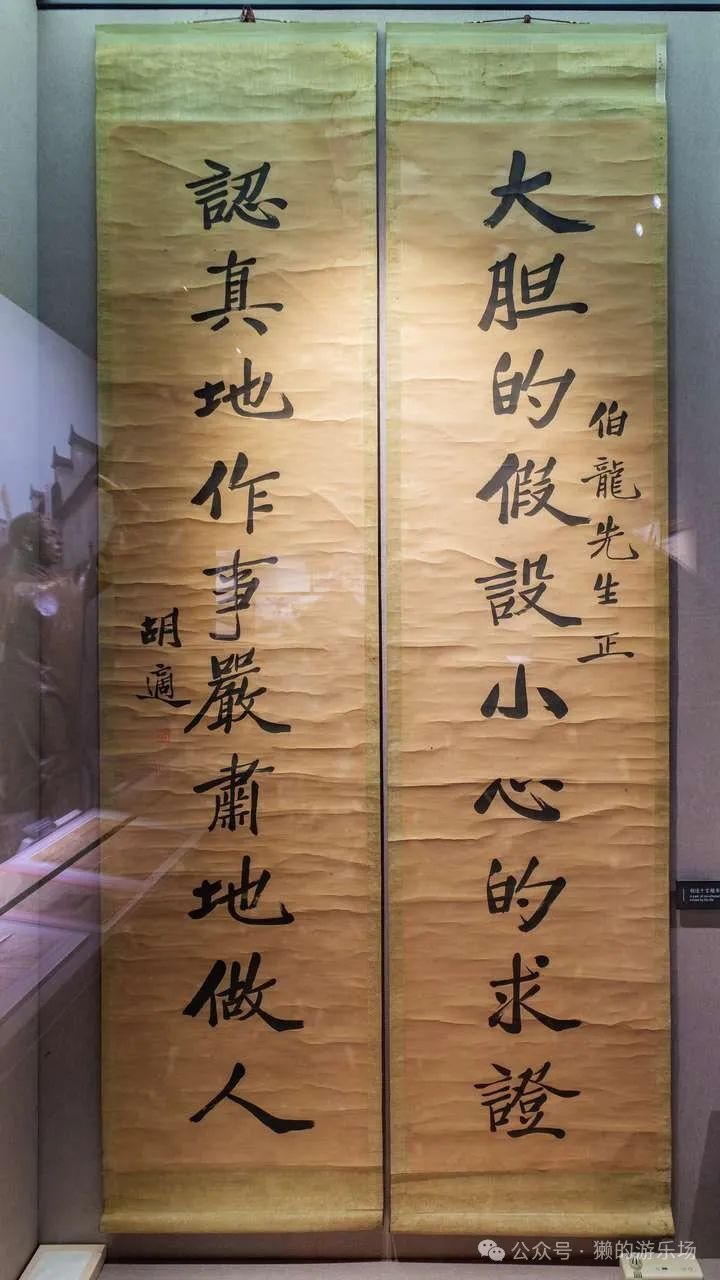 大胆的假設小心的求證
伯龍先生正
認真地作事嚴肅地做人
胡適
公众号·獭的游乐场